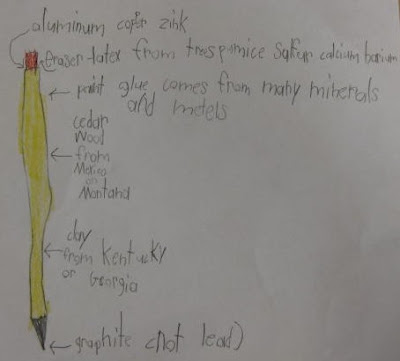 aluminum coper zink
eraser-latex from trespumice Salfur calcium barium
paint glue comes from many minerals
and metels
cedar
wood
from
Mexico
or
Montana
clay
from Kentucky
or Georgia
graphite (not lead)